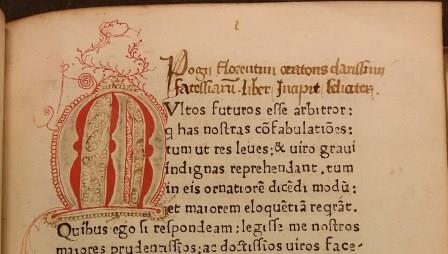 Pogii florentini oratoris clarissimi
facessiarũ liber Incipit feliciter.
MVltos futuros esse arbitror:
q has nostras cõfabulatiões:
tum ut res leues; & uiro graui
indignas reprehendant. tum
in eis ornatiorẽ dicẽdi modũ:
et maiorem eloquẽtiã reqrãt.
Quibus ego si respondeam: legisse me nostros
maiores prudentissios; ac doctissios uiros face-